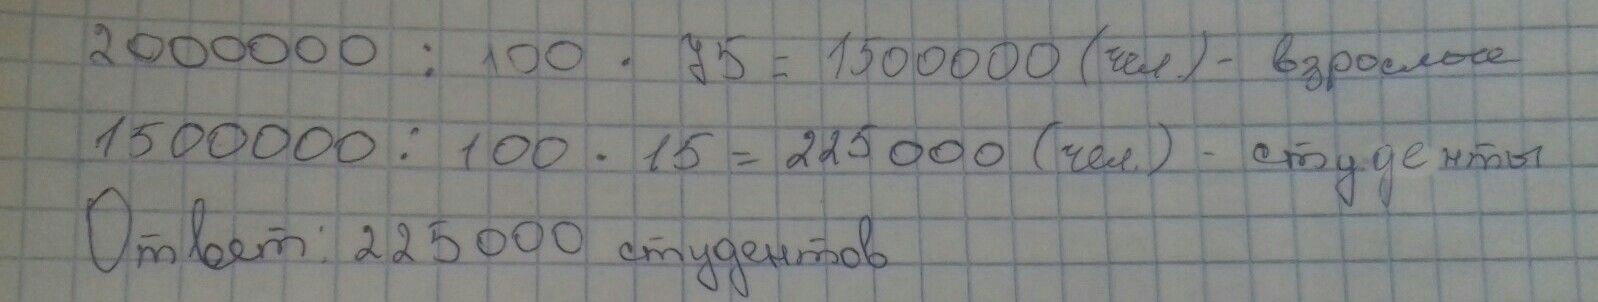 2000000 : 100 · 75 = 1500000 (чел.) - взрослые
1500000 : 100 · 15 = 225000 (чел.) - студенты
Ответ: 225000 студентов